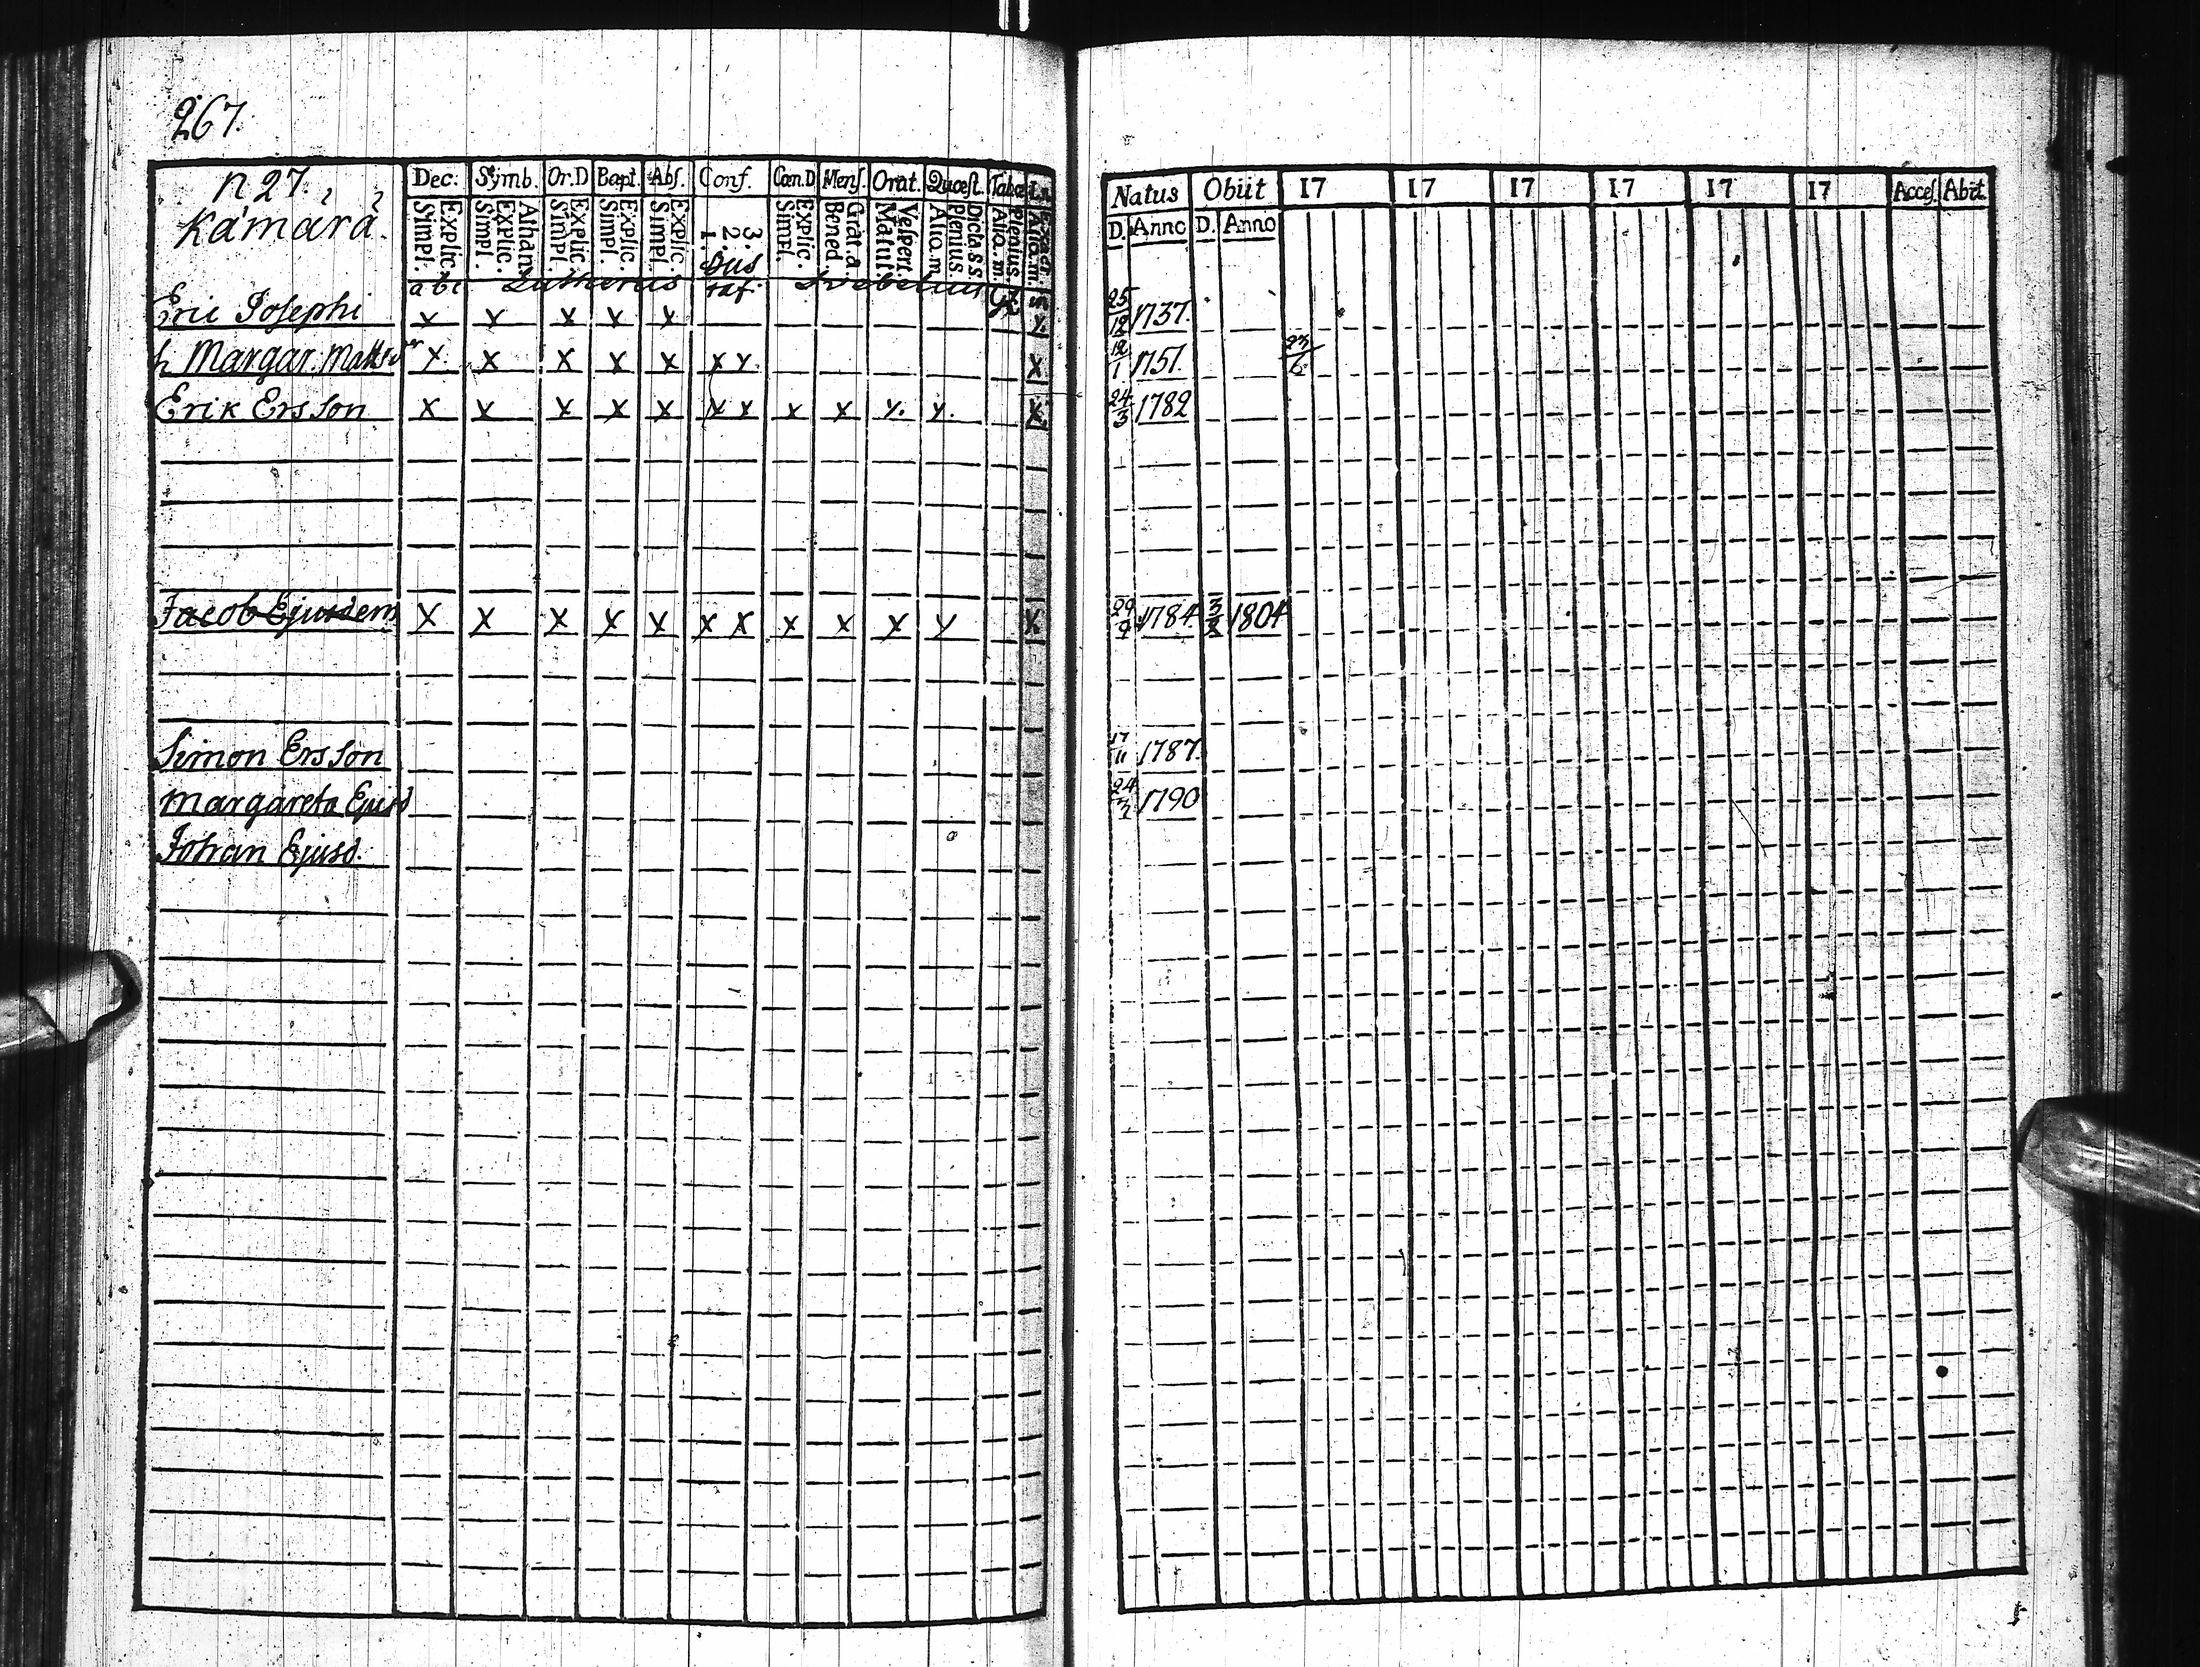 267.
n 27.
Kámárá.
Dec: Symb. Or.D Bapt. Abs. Conf. Cœn.D Mens. Orat. Quæst. Tabæ
Explic. Simpl. Athan. Explic. Simpl. Explic. Simpl. Explic. Simpl. Explic. Simpl. 3. 2. 1. Explic. Simpl. Grat.a. Bened. Vespert. Matut. Dicta.s.s. plenius. Alio.m. Plenius. Alio.m.
abc Lutherus Svebelius
Natus Obiit 17 17 17 17 17 17 Acces. Abiit
D. Anno D. Anno
Eric Josephi x x x x x x 25/12 1737.
h Margar. Matts x x x x x x x x 12/1 1751. 23/6
Erik Ersson x x x x x x x x x x x x 24/3 1782
Jacob Ejusdem x x x x x x x x x x x x 29/9 1784 1804
Simon Ersson 17/11 1787.
Margareta Ejusd 1790
Johan Ejusd.